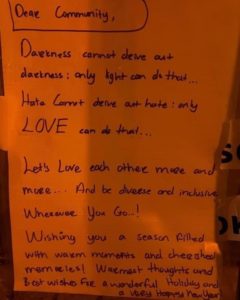 Dear Community,
Darkness cannot drive out
darkness: only light can do that...
Hate Cannot drive out hate: only
LOVE can do that...
Let's Love each other more and
more... And be diverse and inclusive
Wherever You Go..!
Wishing you a season filled
with warm moments and cherished
memories! Warmest thoughts and
Best wishes for a wonderful Holiday and
a very Happy New Year